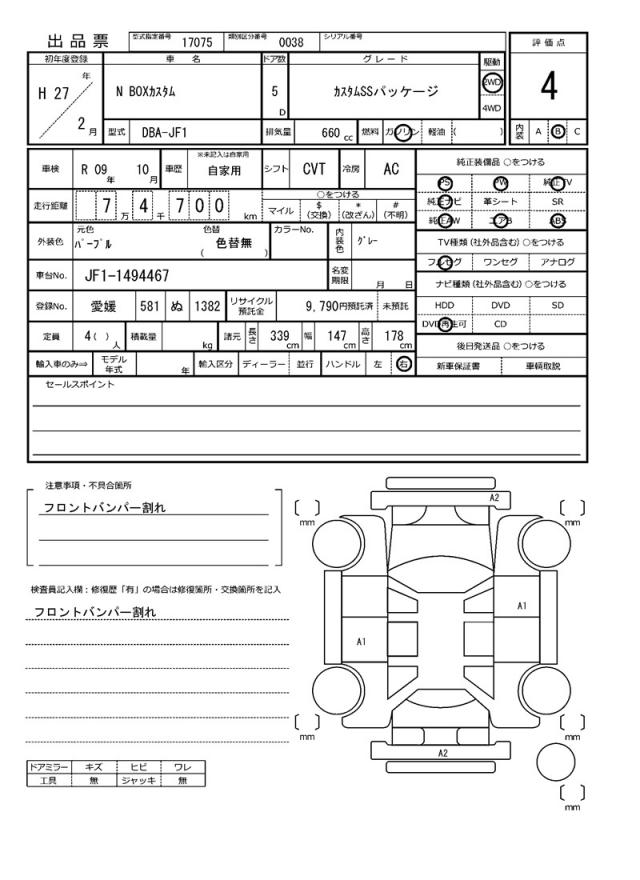 出品票 型式指定番号 17075 類別区分番号 0038 シリアル番号
評価点
4
初年度登録 車名 ドア数 グレード 駆動
H 27 年 2 月 N BOXカスタム 5 D カスタムSSパッケージ 2WD 4WD
型式 DBA-JF1 排気量 660 cc 燃料 ガソリン 軽油 ( )
内装 A B C
車検 R 09 年 10 月 車歴 ※未記入は自家用 自家用 シフト CVT 冷房 AC
走行距離 7 万 4 千 7 0 0 km ○をつける マイル $ (交換) * (改ざん) # (不明)
外装色 元色 パープル 色替 色替無 ( ) カラーNo. 内装色 グレー
車台No. JF1-1494467 名変期限 月 日
登録No. 愛媛 581 ぬ 1382 リサイクル預託金 9,790円預託済 未預託
定員 4( )人 積載量 kg 諸元 長さ 339cm 幅 147cm 高さ 178cm
輸入車のみ⇒ モデル年式 年 輸入区分 ディーラー 並行 ハンドル 左 右
純正装備品 ○をつける
PS PW 純正TV
純正ナビ 革シート SR
純正AW エアB ABS
TV種類 (社外品含む) ○をつける
フルセグ ワンセグ アナログ
ナビ種類 (社外品含む) ○をつける
HDD DVD SD
DVD再生可 CD
後日発送品 ○をつける
新車保証書 車輌取説
セールスポイント
注意事項・不具合箇所
フロントバンパー割れ
検査員記入欄：修復歴「有」の場合は修復箇所・交換箇所を記入
フロントバンパー割れ
ドアミラー キズ ヒビ ワレ
工具 無 ジャッキ 無
A2
mm mm
A1
A1
mm mm
A2
mm